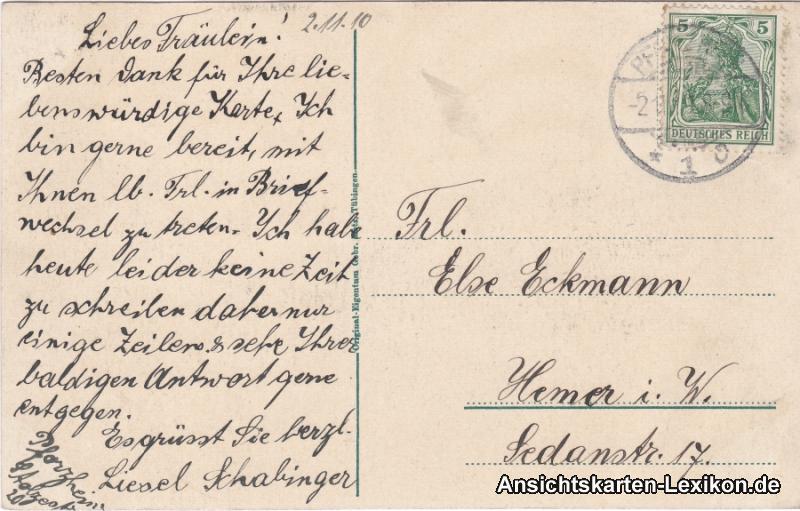 2.11.10
Liebes Fräulein!
Besten Dank für Ihre lie-
benswürdige Karte, Ich
bin gerne bereit, mit
Ihnen lb. Frl. in Brief-
wechsel zu treten. Ich habe
heute leider keine Zeit
zu schreiben daher nur
einige Zeilen & sehe Ihrer
baldigen Antwort gerne
entgegen.
Es grüsst Sie herzl.
Liesel Schabinger
Pforzheim
20
Original-Eigentum Gebr. Metz, Tübingen
5 5
DEUTSCHES REICH
PF
-2.
* 1 c
Frl.
Else Eckmann
Hemer i. W.
Sedanstr. 17.
Ansichtskarten-Lexikon.de